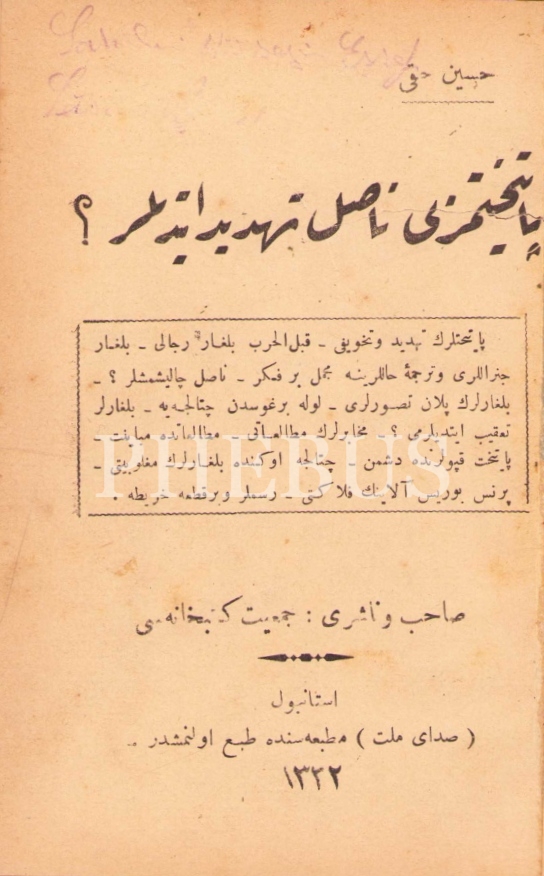 حسين حقى
پايتختمزى ناصل تهديد ايتديلر ؟
پايتختلرك تهديد وتخويفى ـ قبل الحرب بلغار رجالى ـ بلغار
جنراللرى وترجمۀ حاللرينه مجمل بر فكر ـ ناصل چاليشمشلر ؟ ـ
بلغارلرك پلان تصورلرى ـ لوله برغوسدن چتالجه‌يه ـ بلغارلر
تعقيب ايتديلرمى ؟ ـ مخابرلرك مطالعاتى ـ مطالعاتده مباينت ـ
پايتخت قپولرنده دشمن ـ چتالجه اوكنده بلغارلرك مغلوبيتى ـ
پرنس بوريس آلاينك فلاكتى ـ رسملر وبر قطعه خريطه .
PHEBUS
صاحب وناشرى : جمعيت كتبخانه‌سى
استانبول
( صداى ملت ) مطبعه‌سنده طبع اولنمشدر ـ
١٣٣٢